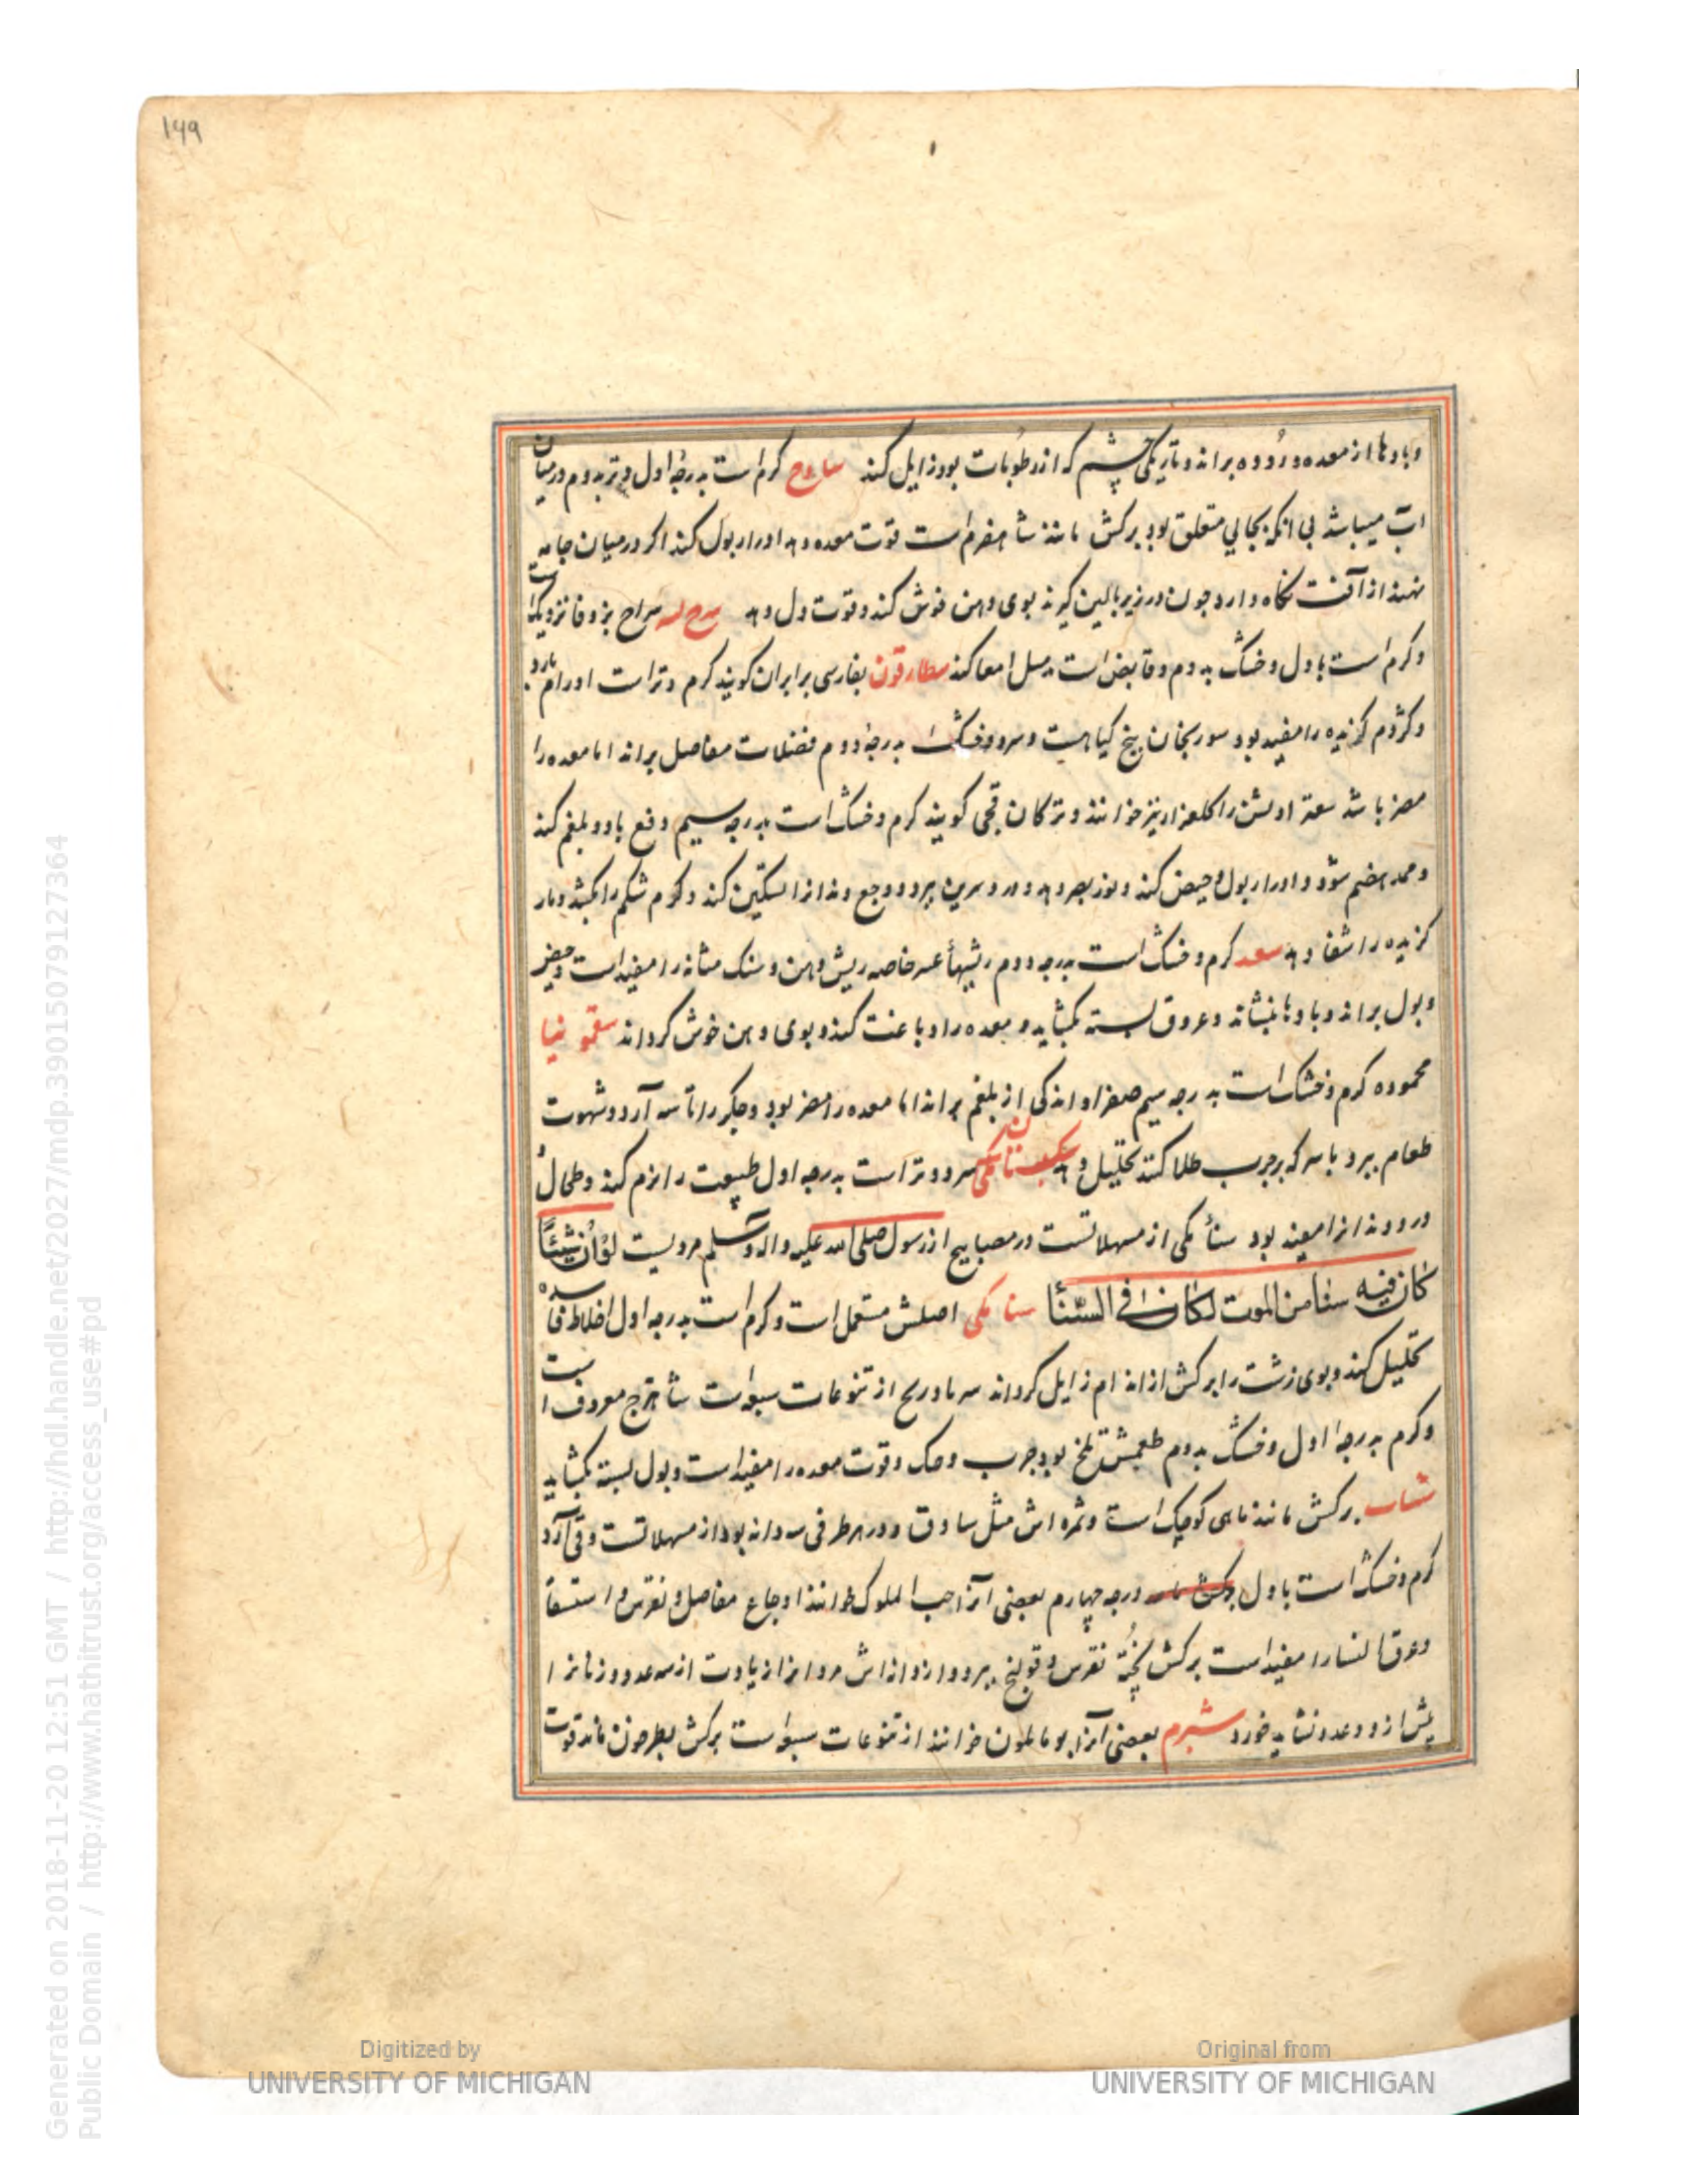 ۱۴۹
وبادها از معده و روده براند وتاریکی چشم که از رطوبات بود زایل کند ساذج کرم است بدرجهٔ اول وتر بدوم درمیان
اب میباشد بی انکه بجایی متعلق بود برکش مانند شاهفرم است قوت معده دهد ادرار بول کند اکر درمیان جامه
نهند از آفت نکاه دارد جون در زیر بالین کیرند بوی دهن خوش کند وقوت دل دهد سراج بزوفا نزدیک است
وکرم است باول وخشک بدوم وقابض است امعا کند سطارقون بفارسی برابران کویند کرم وتر است اورام بارد
وکژدم کزیده را مفید بود سورنجان بیخ کیاهیست وسرد وخشک است بدرجهٔ دوم فضلات مفاصل براند اما معده را
مضر باشد سعتر خوانند وترکان قجی کویند کرم وخشک است بدرجه سیم دفع باد وبلغم کند
وممد هضم شود وادرار بول وحیض کند ونور بصر دهد ودرد سرین ببرد ووجع دندانرا تسکین کند وکرم شکم را بکشد ومار
کزیده را شفا دهد سعد کرم وخشک است بدرجه دوم ریشهاء عسر خاصه ریش دهن وسنک مثانه را مفید است وحیض
وبول براند وبادها بنشاند وعروق بسته بکشاید ومعده را دباغت کند وبوی دهن خوش کرداند سقمونیا
محموده کرم وخشک است بدرجه سیم صفرا واندکی از بلغم براند اما معده را مضر بود وجکر را آرد وشهوت
طعام ببرد باسرکه برجرب طلا کنند تحلیل دهد سرد وتر است بدرجه اول طبیعت را نرم کند وطحال
ودرد دندانرا مفید بود سناء مکی از مسهلاتست در مصابیح از رسول صلی الله علیه واله وسلم مرویست لو ان شیئا
کان فیه شفا من الموت لکان فی السنا سنا مکی اصلش مستعمل است وکرم است بدرجه اول اخلاط فاسده
تحلیل کند وبوی زشت را برکش از اندام زایل کرداند از تنوعات سبعه است شاهترج معروف است
وکرم بدرجه اول وخشک بدوم طعمش تلخ بود جرب وحک وقوت معده را مفید است وبول بسته بکشاید
برکش مانند ماهی کوچک است وثمره اش مثل ساوق ودر هر طرفی سه دانه بود از مسهلاتست وقی آرد
کرم وخشک است باول درجه چهارم بعضی انرا حب الملوک خوانند اوجاع مفاصل ونقرس واستسقا
وعرق النسا را مفید است برکش پخته نقرس وقولنج ببرد واز دانه اش مردانرا زیادت از سه عدد وزنانرا
پیش از دو عدد نشاید خورد شبرم بعضی انرا خوانند از تنوعات سبعه است برکش بطرخون ماند قوت
Generated on 2018-11-20 12:51 GMT / http://hdl.handle.net/2027/mdp.39015079127364
Public Domain / http://www.hathitrust.org/access_use#pd
Digitized by
UNIVERSITY OF MICHIGAN
Original from
UNIVERSITY OF MICHIGAN